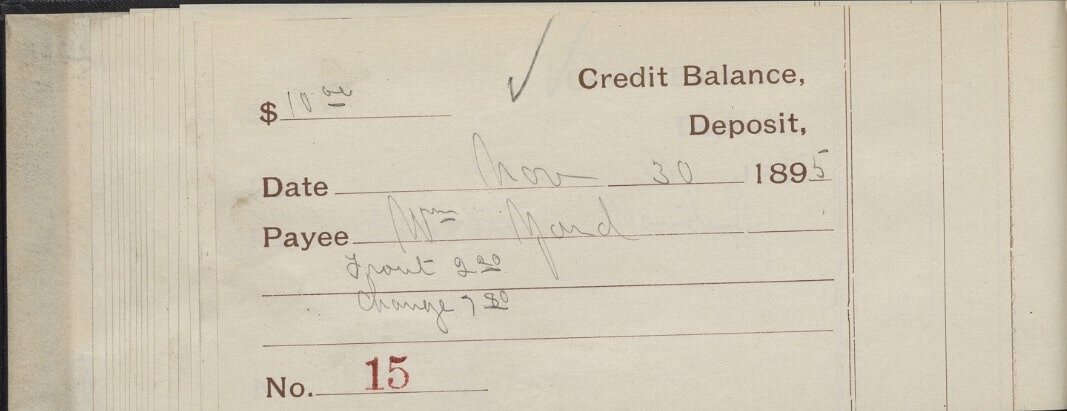 $ 10 00 Credit Balance,
Deposit,
Date Nov 30 1895
Payee Wm Yard
Trout 2 20
Change 7 80
No. 15